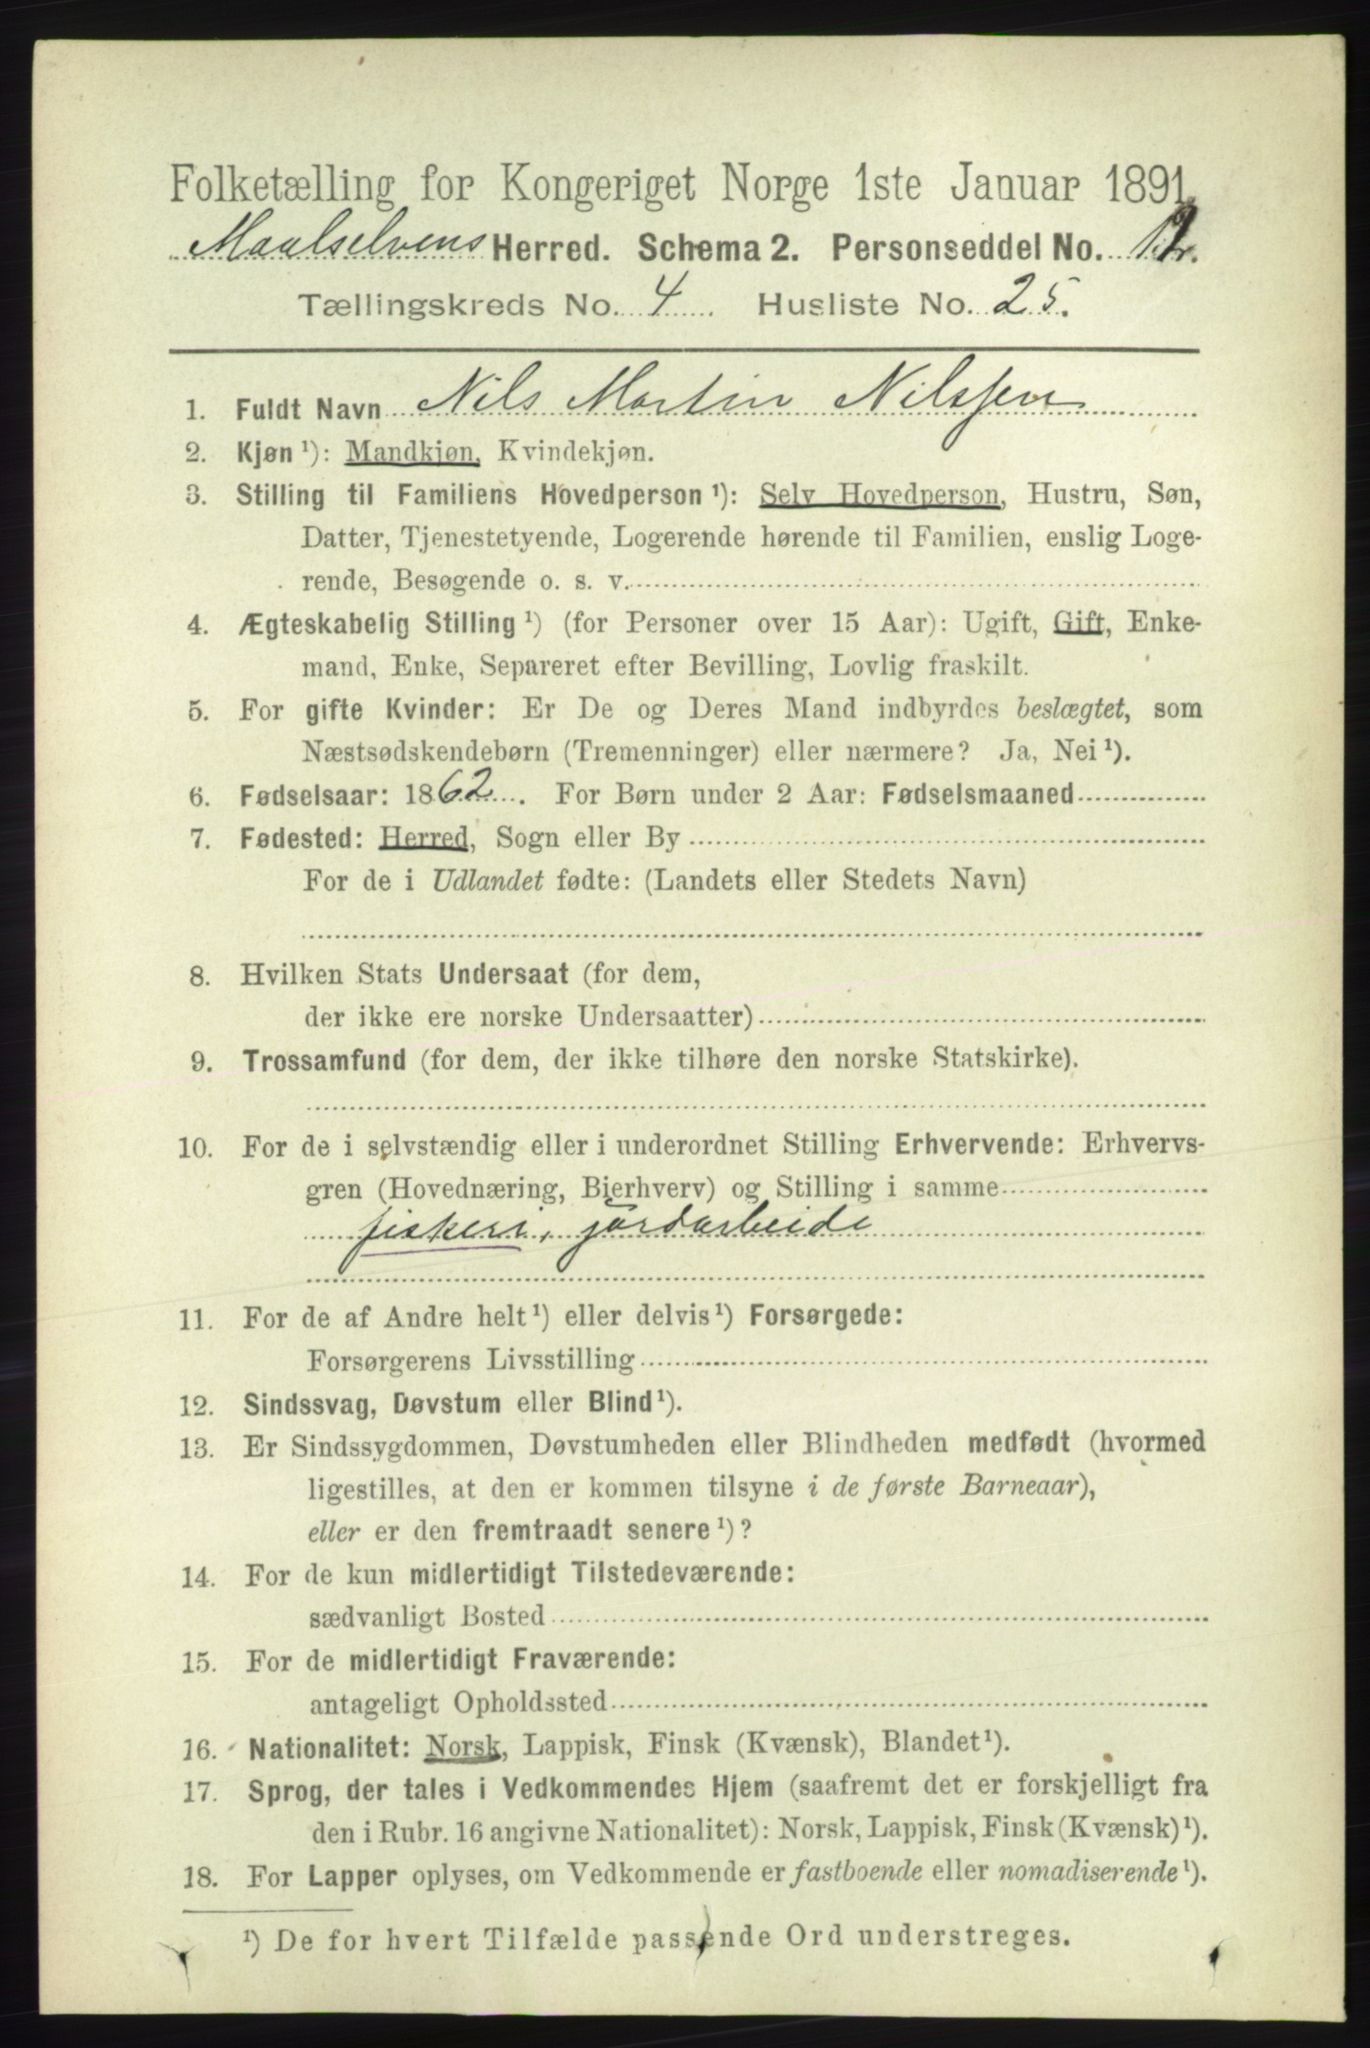 Folketælling for Kongeriget Norge 1ste Januar 1891.
Maalselvens Herred. Schema 2. Personseddel No. 12.
Tællingskreds No. 4 Husliste No. 25.
1. Fuldt Navn Nils Martin Nilssen
2. Kjøn ¹): Mandkjøn, Kvindekjøn.
3. Stilling til Familiens Hovedperson ¹): Selv Hovedperson, Hustru, Søn,
Datter, Tjenestetyende, Logerende hørende til Familien, enslig Loge-
rende, Besøgende o. s. v.
4. Ægteskabelig Stilling ¹) (for Personer over 15 Aar): Ugift, Gift, Enke-
mand, Enke, Separeret efter Bevilling, Lovlig fraskilt.
5. For gifte Kvinder: Er De og Deres Mand indbyrdes beslægtet, som
Næstsødskendebørn (Tremenninger) eller nærmere? Ja, Nei ¹).
6. Fødselsaar: 1862. For Børn under 2 Aar: Fødselsmaaned
7. Fødested: Herred, Sogn eller By
For de i Udlandet fødte: (Landets eller Stedets Navn)
8. Hvilken Stats Undersaat (for dem,
der ikke ere norske Undersaatter)
9. Trossamfund (for dem, der ikke tilhøre den norske Statskirke).
10. For de i selvstændig eller i underordnet Stilling Erhvervende: Erhvervs-
gren (Hovednæring, Bierhverv) og Stilling i samme
fiskeri, jordarbeide
11. For de af Andre helt ¹) eller delvis ¹) Forsørgede:
Forsørgerens Livsstilling
12. Sindssvag, Døvstum eller Blind ¹).
13. Er Sindssygdommen, Døvstumheden eller Blindheden medfødt (hvormed
ligestilles, at den er kommen tilsyne i de første Barneaar),
eller er den fremtraadt senere ¹)?
14. For de kun midlertidigt Tilstedeværende:
sædvanligt Bosted
15. For de midlertidigt Fraværende:
antageligt Opholdssted
16. Nationalitet: Norsk, Lappisk, Finsk (Kvænsk), Blandet ¹).
17. Sprog, der tales i Vedkommendes Hjem (saafremt det er forskjelligt fra
den i Rubr. 16 angivne Nationalitet): Norsk, Lappisk, Finsk (Kvænsk) ¹).
18. For Lapper oplyses, om Vedkommende er fastboende eller nomadiserende ¹).
¹) De for hvert Tilfælde passende Ord understreges.